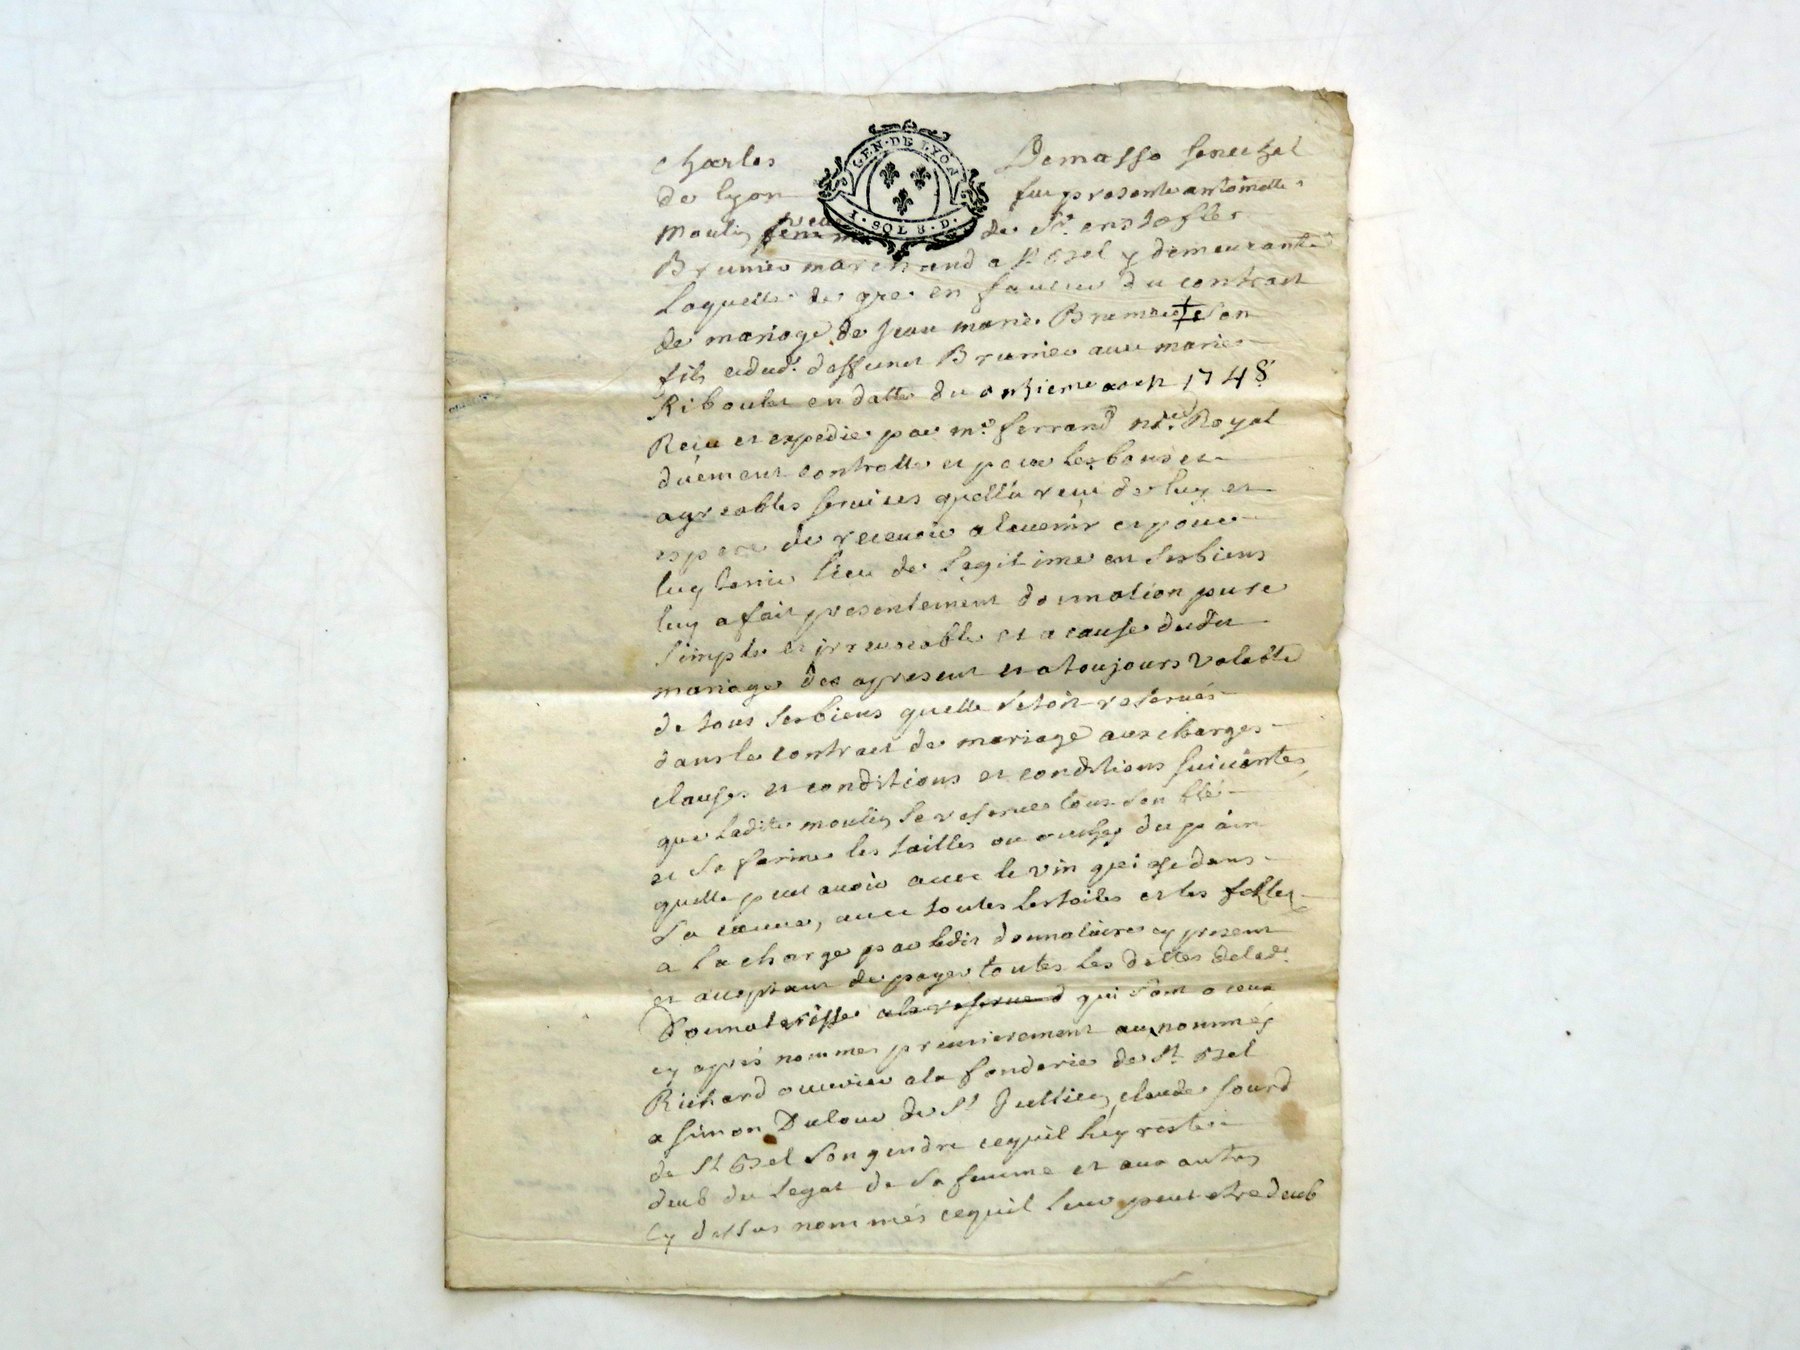 GEN. DE LYON
1. SOL 8. D.
Charles Demasso senechal
de lyon fut presente antoinette
Moulin veuve de Sr.
Brunier marchand a St Bel y demeurante
Laquelle de gré en faveur du contract
de mariage de Jean marie Brunier son
fils et dud. deffunct Brunier avec marie
Riboulet en datte du onzieme aout 1748
Reçu et expedie par me. ferrand nre. Royal
duement controlle et pour les bons et
agreables services quell'a reçu de luy et
espere de recevoir alavenir et pour
luy tenir lieu de legitime en sesbiens
luy a fait presentement donnation pure
simple et irrevocable et a cause dudit
mariage des apresent et atoujours valable
de tous sesbiens quelle setoit reservés
dans le contract de mariage aux charges
clauses et conditions et conditions suivantes,
que ladite moulin se reserve tout son blé
et sa farine les tailles ou du pain
quelle peut avoir avec le vin qui est dans
sa cave, avec toutes les toiles et les
a la charge par ledit donnataire cy present
et acceptant de payer toutes les dettes delad.
Donnatrisse ala reserve d qui sont a ceux
cy aprés nommes premierement au nommés
Richard ouvrier ala fonderie de St Bel
a simon Dulour de St Jullien, claude sourd
de St Bel son gendre cequil luy reste
deub du legat de sa femme et aux autres
cy dessus nommés cequil leur peut etre deub